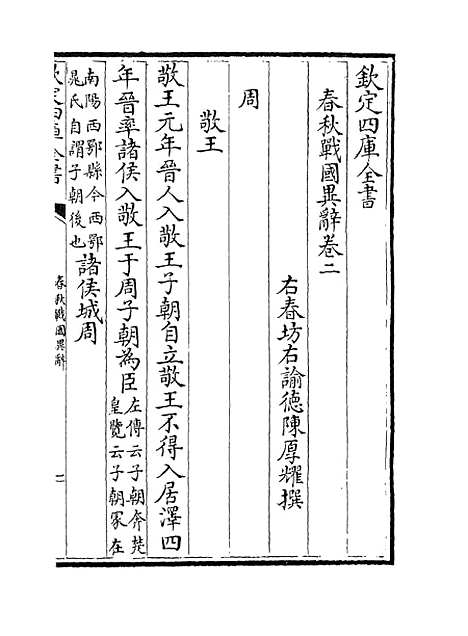 欽定四庫全書
春秋戰國異辭卷二
右春坊右諭德陳厚耀撰
周
敬王
敬王元年晉人入敬王子朝自立敬王不得入居澤四
年晉率諸侯入敬王于周子朝為臣左傳云子朝奔楚
皇覽云子朝冢在
南陽西鄂縣今西鄂
晁氏自謂子朝後也諸侯城周
欽定四庫全書
春秋戰國異辭